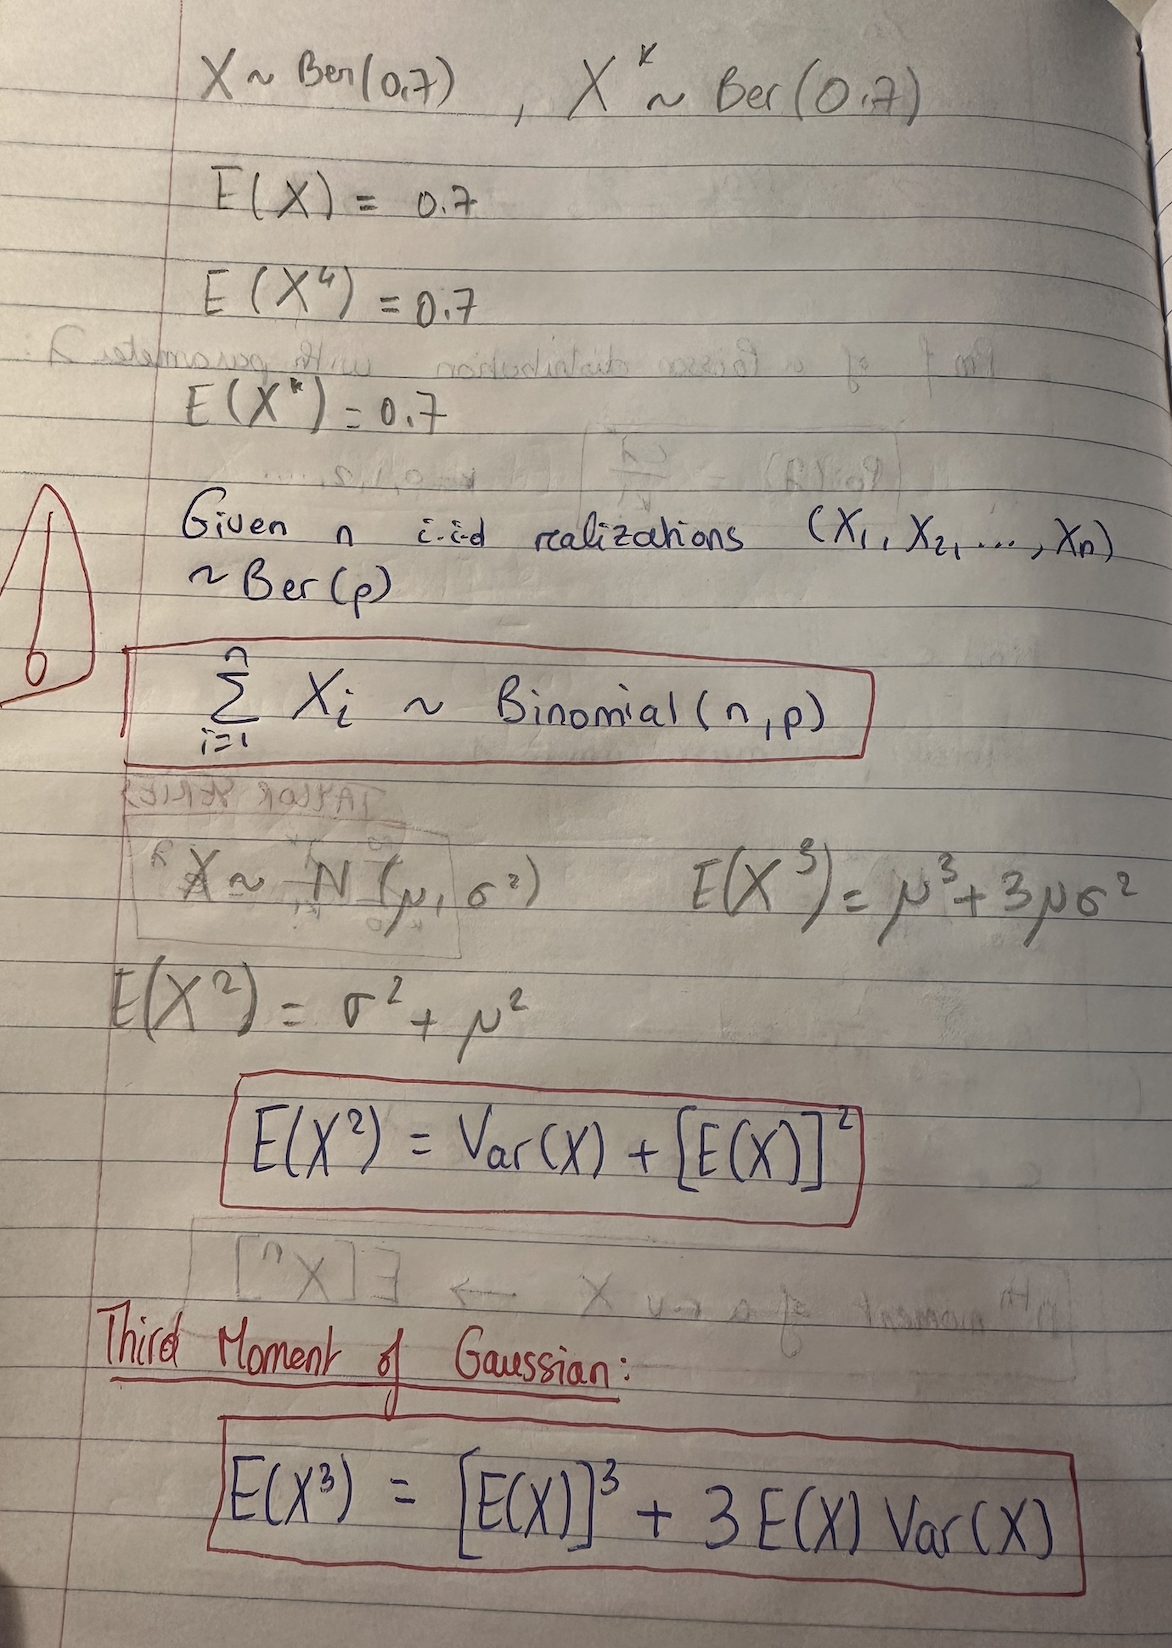 X ~ Ber(0.7) , Xᵏ ~ Ber(0.7)
E(X) = 0.7
E(X⁴) = 0.7
E(Xᵏ) = 0.7
Given n i.i.d realizations (X₁, X₂, ..., Xₙ)
~ Ber(p)
∑ᵢ₌₁ⁿ Xᵢ ~ Binomial(n,p)
X ~ N(μ, σ²) E(X³) = μ³ + 3μσ²
E(X²) = σ² + μ²
E(X²) = Var(X) + [E(X)]²
Third Moment of Gaussian:
E(X³) = [E(X)]³ + 3 E(X) Var(X)